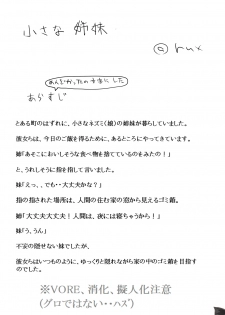 小さな 姉妹
@rux
あんまかかったの本当にした
あらすじ
とある町のはずれに、小さなネズミ(娘)の姉妹が暮らしていました。
彼女らは、今日のご飯を得るために、あるところにやってきています。
姉「あそこにおいしそうな食べ物を捨てているのをみたの！」
と、うれしそうに指を指して言いました。
妹「えっ、、でも・・大丈夫かな？」
指の指された場所は、人間の住む家の窓から見えるゴミ箱。
姉「大丈夫大丈夫！人間は、夜には寝ちゃうから！」
妹「う、うん」
不安の隠せない妹でしたが、
彼女らはいつものように、ゆっくりと隠れながら家の中のゴミ箱を目指すのでした。
※VORE、消化、擬人化注意
(グロではない・・ハズ)